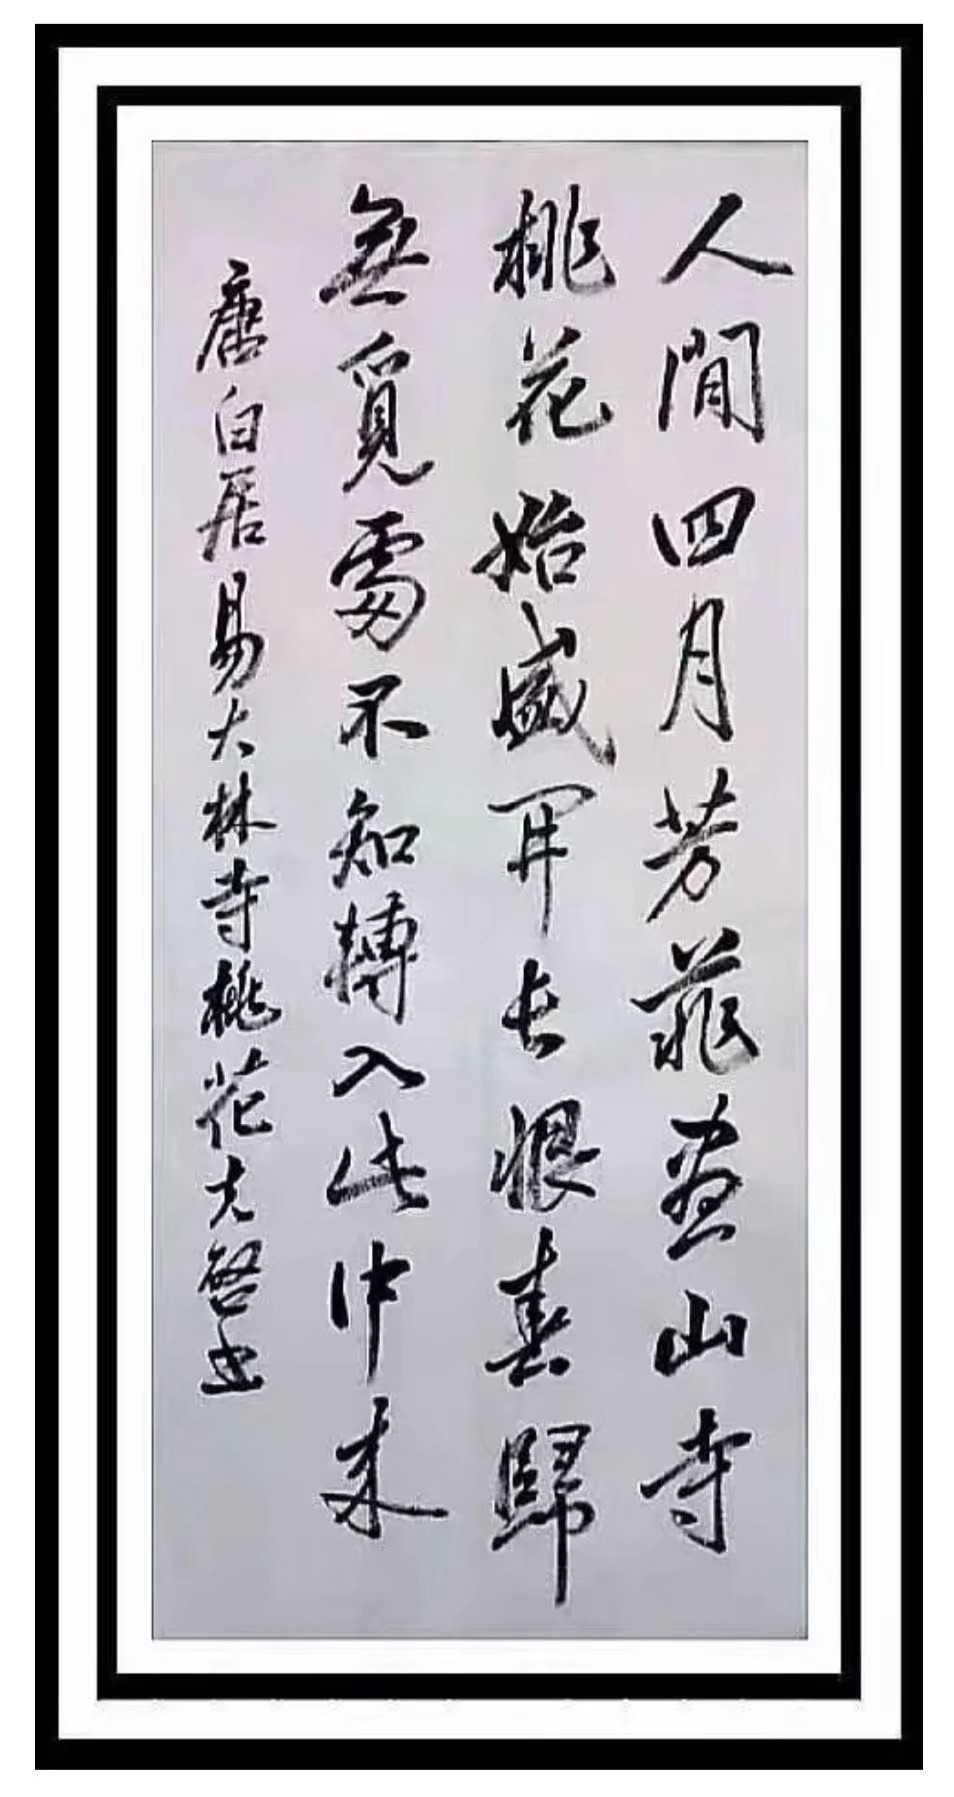 人間四月芳菲盡山寺
桃花始盛開長恨春歸
無覓處不知轉入此中来
唐白居易大林寺桃花啓书